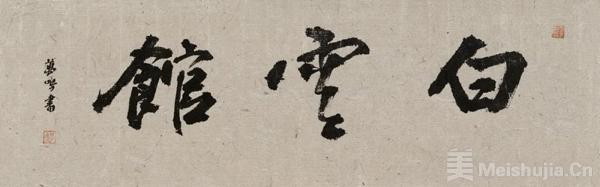 白雲館
美 Meishujia.Cn